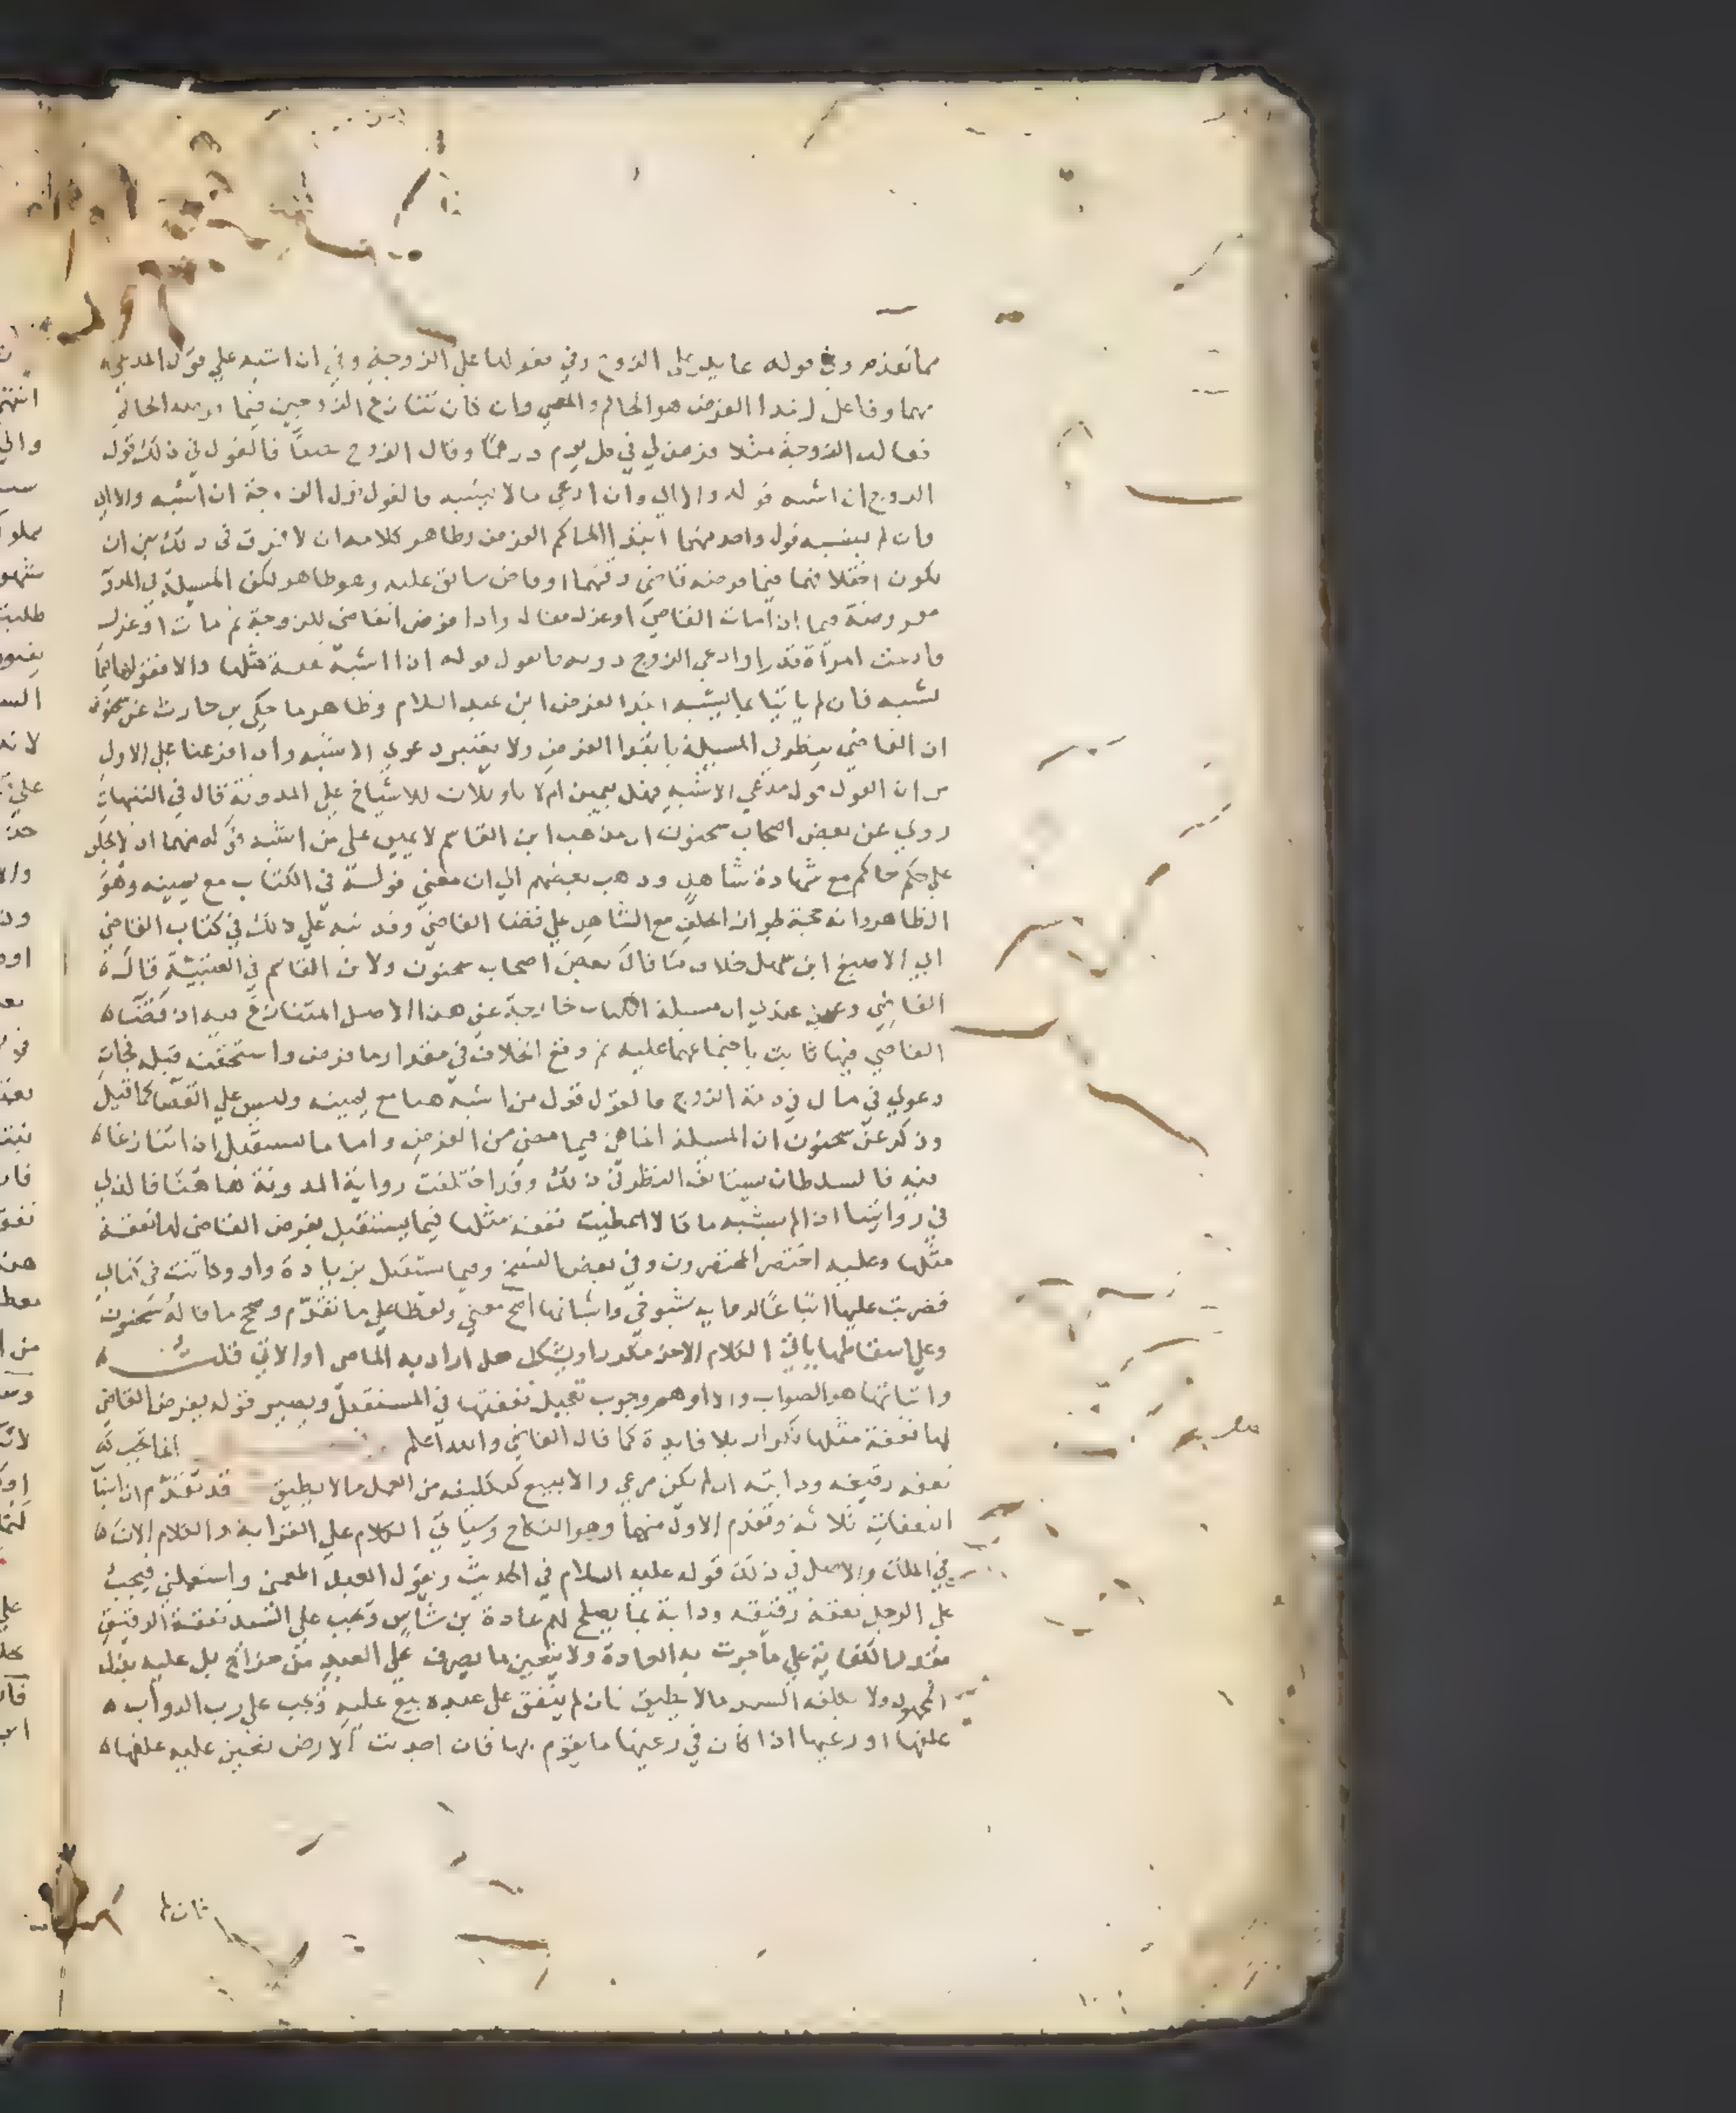 مما تقدم وفي قوله عايد على الزوج وفي بقولها على الزوجة وفي ان اشبه على قول المدعي
منهما وفاعل ابتدا الفرض هو الحاكم والمعني وان كان تنازع الزوجين فيما فرضه الحاكم
فقالت الزوجة مثلا فرض لي في كل يوم درهما وقال الزوج نصفا فالقول في ذلك قول
الزوج ان اشبه قوله والا اي وان ادعى ما لا يشبه فالقول قول الزوجة ان اشبه والا اي
فان لم يشبه قول واحد منهما ابتدا الحاكم الفرض وظاهر كلامه ان لا فرق في ذلك بين ان
يكون اختلافهما فيما فرضه قاضي وقتهما او قاض سابق عليه وهو ظاهر لكن المسيلة في المدونة
مفروضة فيما اذا مات القاضي او عزل فقال واذا فرض القاضي للزوجة ثم مات او عزل
فادعت امراة قدرا وادعى الزوج دونه فالقول قوله اذا اشبه نفقة مثلها والا فقولها فيما
يشبه فان لم ياتيا بما يشبه ابتدا الفرض ابن عبد السلام وظاهر ما حكى بن حارث عن سحنون
ان القاضي ينظر في المسيلة بابتدا الفرض ولا يعتبر دعوى الاشبه واذا فرعنا على الاول
من ان القول قول مدعي الاشبه فهل بيمين ام لا تاويلان للاشياخ على المدونة قال في التنبيهات
روي عن بعض اصحاب سحنون ان مذهب ابن القاسم لا يمين على من اشبه قوله منهما اذ لا يحلف
على حكم حاكم مع شهادة شاهد وذهب بعضهم الي ان معني قوله في الكتاب مع يمينه وهو
الظاهر وانه حجة لجواز الحلف مع الشاهد على قضا القاضي وقد نبه على ذلك في كتاب القاضي
ابي الاصبغ ابن سهل خلاف ما قال بعض اصحاب سحنون ولابن القاسم في العتبية قال
القاضي وعندي ان مسيلة الكتاب خارجة عن هذا الاصل المتنازع فيه اذ قضاء
القاضي فيها ثابت باجتماعهما عليه ثم وقع الخلاف في مقدار ما فرض واستحقته قبله فجات
دعوي في مال في ذمة الزوج فالقول قول من اشبه منهما مع يمينه وليس على القضا كما قيل
وذكر عن سحنون ان المسيلة انما هي فيما مضي من الفرض واما ما يستقبل ان تنازعا
فيه فالسلطان يستانف النظر في ذلك وقد اختلفت رواية المدونة هاهنا فالذي
في روايتنا اذا لم يشبه ما قالا اعطيت نفقة مثلها فيما يستقبل يفرض القاضي لها نفقة
مثلها وعليه اختصر المختصرون وفي بعض النسخ وفيما يستقبل بزيادة واو وكانت في كتابي
فضربت عليها اتباعا لروايه شيوخي واثباتها اصح معني ولفظا على ما تقدم وصحح ما قاله سحنون
وعلى اسقاطها ياتي الكلام الاخر مكررا ويشكل هل اراد به الماضي او الاتي قلت
واثباتها هو الصواب والا اوهم وجوب تعجيل نفقتها في المستقبل ويصير قوله يفرض القاضي
لها نفقة مثلها تكرار بلا فايدة كما قال القاضي والله اعلم انما تجب
نفقة رقيقه ودابته ان لم يكن مرعي والا بيع كتكليفه من العمل ما لا يطيق قد تقدم ان اسباب
النفقات ثلاثة وتقدم الاول منها وهو النكاح وسياتي الكلام على القرابة والكلام الان
في الملك والاصل في ذلك قوله عليه السلام في الحديث ويقول العبد اطعمني واستعملني فيجب
على الرجل نفقة رقيقه ودابة بما يصلح لهم عادة بن شاس وتجب على السيد نفقة الرقيق
بقدر الكفاية على ما جرت به العادة ولا يتعين ما يصرف على العبد من خراج بل عليه بذل
المجهود ولا يكلفه السيد ما لا يطيق فان لم ينفق على عبده بيع عليه وتجب على رب الدواب
علفها او رعيها اذا كان في رعيها ما يقوم بها فان اجدبت الارض تعين عليه علفها
فان لم